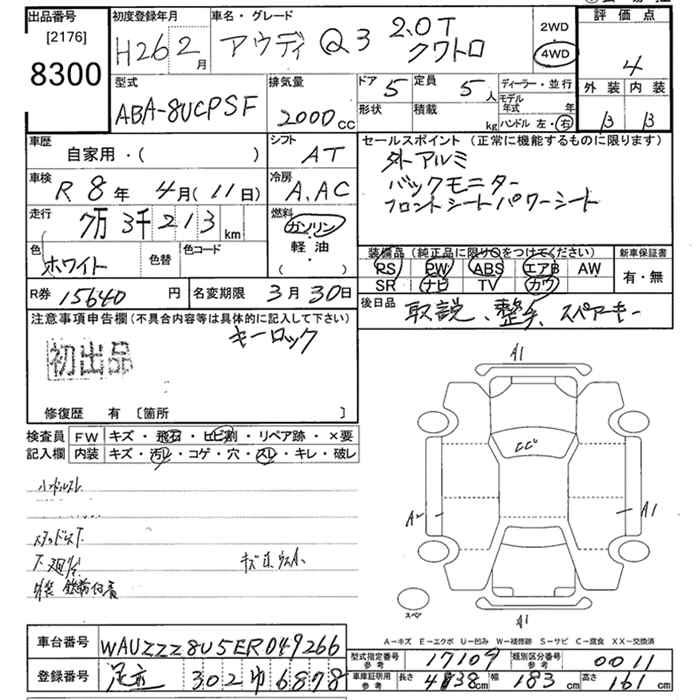 出品番号
[2176]
8300
初度登録年月
H26 2月
車名・グレード
アウディ Q3 2.0T
クワトロ
2WD
4WD
評価点
4
外装 内装
B B
型式
ABA-8UCPSF
排気量
2000cc
ドア 5
定員 5人
形状
積載 kg
ディーラー・並行
モデル年式 年
ハンドル 左・右
車歴
自家用・( )
シフト
AT
セールスポイント(正常に機能するものに限ります)
外アルミ
バックモニター
フロントシートパワーシート
車検
R 8年 4月(11日)
冷房
A,AC
走行
7万3千213km
燃料
ガソリン
軽・油
( ・ )
色
ホワイト
色替
色コード
装備品(純正品に限り○をつけてください)
新車保証書
PS PW ABS エアB AW
SR ナビ TV カワ
有・無
R券 15640円
名変期限 3月30日
後日品
取説、整手、スペアキー
注意事項申告欄(不具合内容等は具体的に記入して下さい)
キーロック
初出品
修復歴 有 〔箇所 〕
検査員
記入欄
FW キズ・飛石・ヒビ割・リペア跡・×要
内装 キズ・汚レ・コゲ・穴・スレ・キレ・破レ
A1
A2
A1
スペア
A1
A-キズ E-エクボ U-凹み W-補修跡 S-サビ C-腐食 XX-交換済
車台番号
WAUZZZ8U5ER049266
登録番号
足立 302 ゆ 6878
型式指定番号
参考
17109
類別区分番号
参考
0011
車庫証明用
参考
長さ 438cm
幅 183cm
高さ 161cm